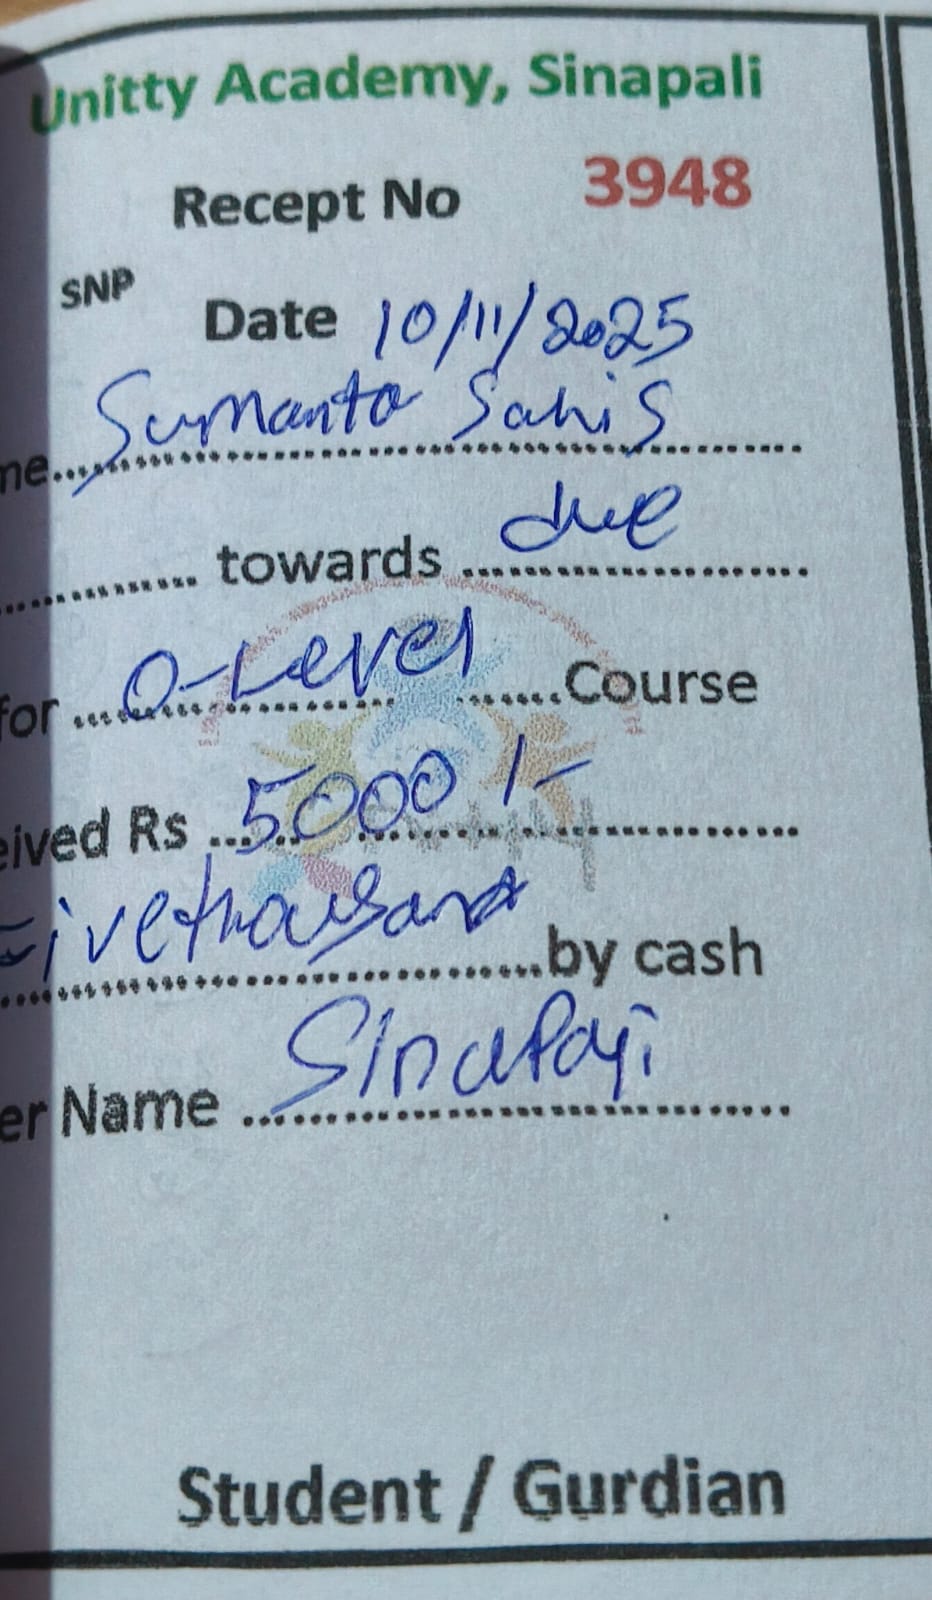 Unitty Academy, Sinapali
Recept No 3948
SNP
Date 10/11/2025
me Sumanta Sahis
towards due
for O-Level Course
eived Rs 5000/-
Fivethousand by cash
er Name Sinapali
Student / Gurdian